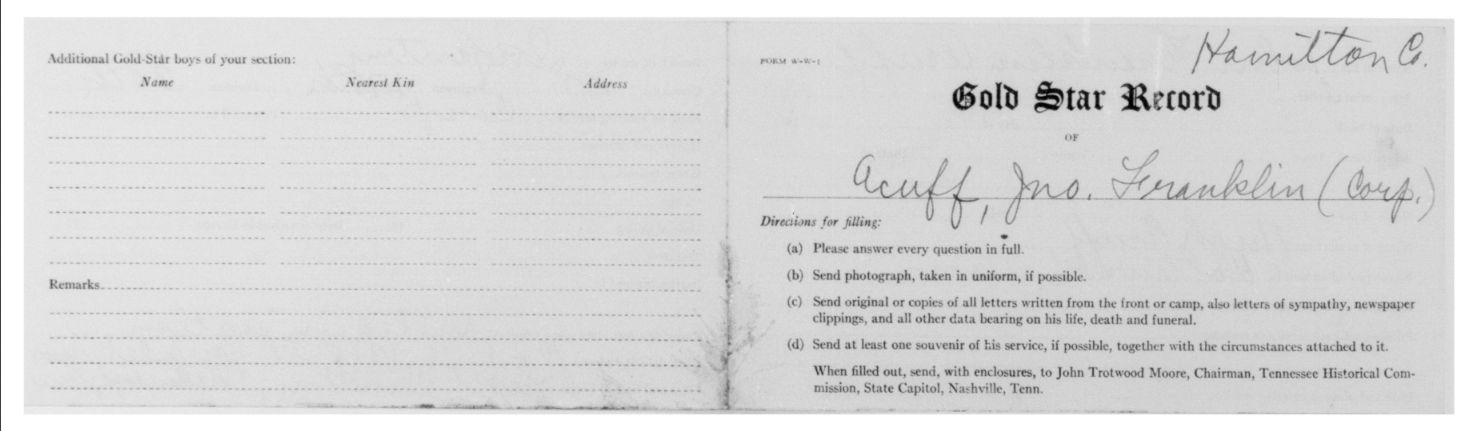 Additional Gold-Star boys of your section:
Name Nearest Kin Address
Remarks
Hamilton Co.
FORM W-W-1
Gold Star Record
OF
Acuff, Jno. Franklin (Corp.)
Directions for filling:
(a) Please answer every question in full.
(b) Send photograph, taken in uniform, if possible.
(c) Send original or copies of all letters written from the front or camp, also letters of sympathy, newspaper
clippings, and all other data bearing on his life, death and funeral.
(d) Send at least one souvenir of his service, if possible, together with the circumstances attached to it.
When filled out, send, with enclosures, to John Trotwood Moore, Chairman, Tennessee Historical Com-
mission, State Capitol, Nashville, Tenn.